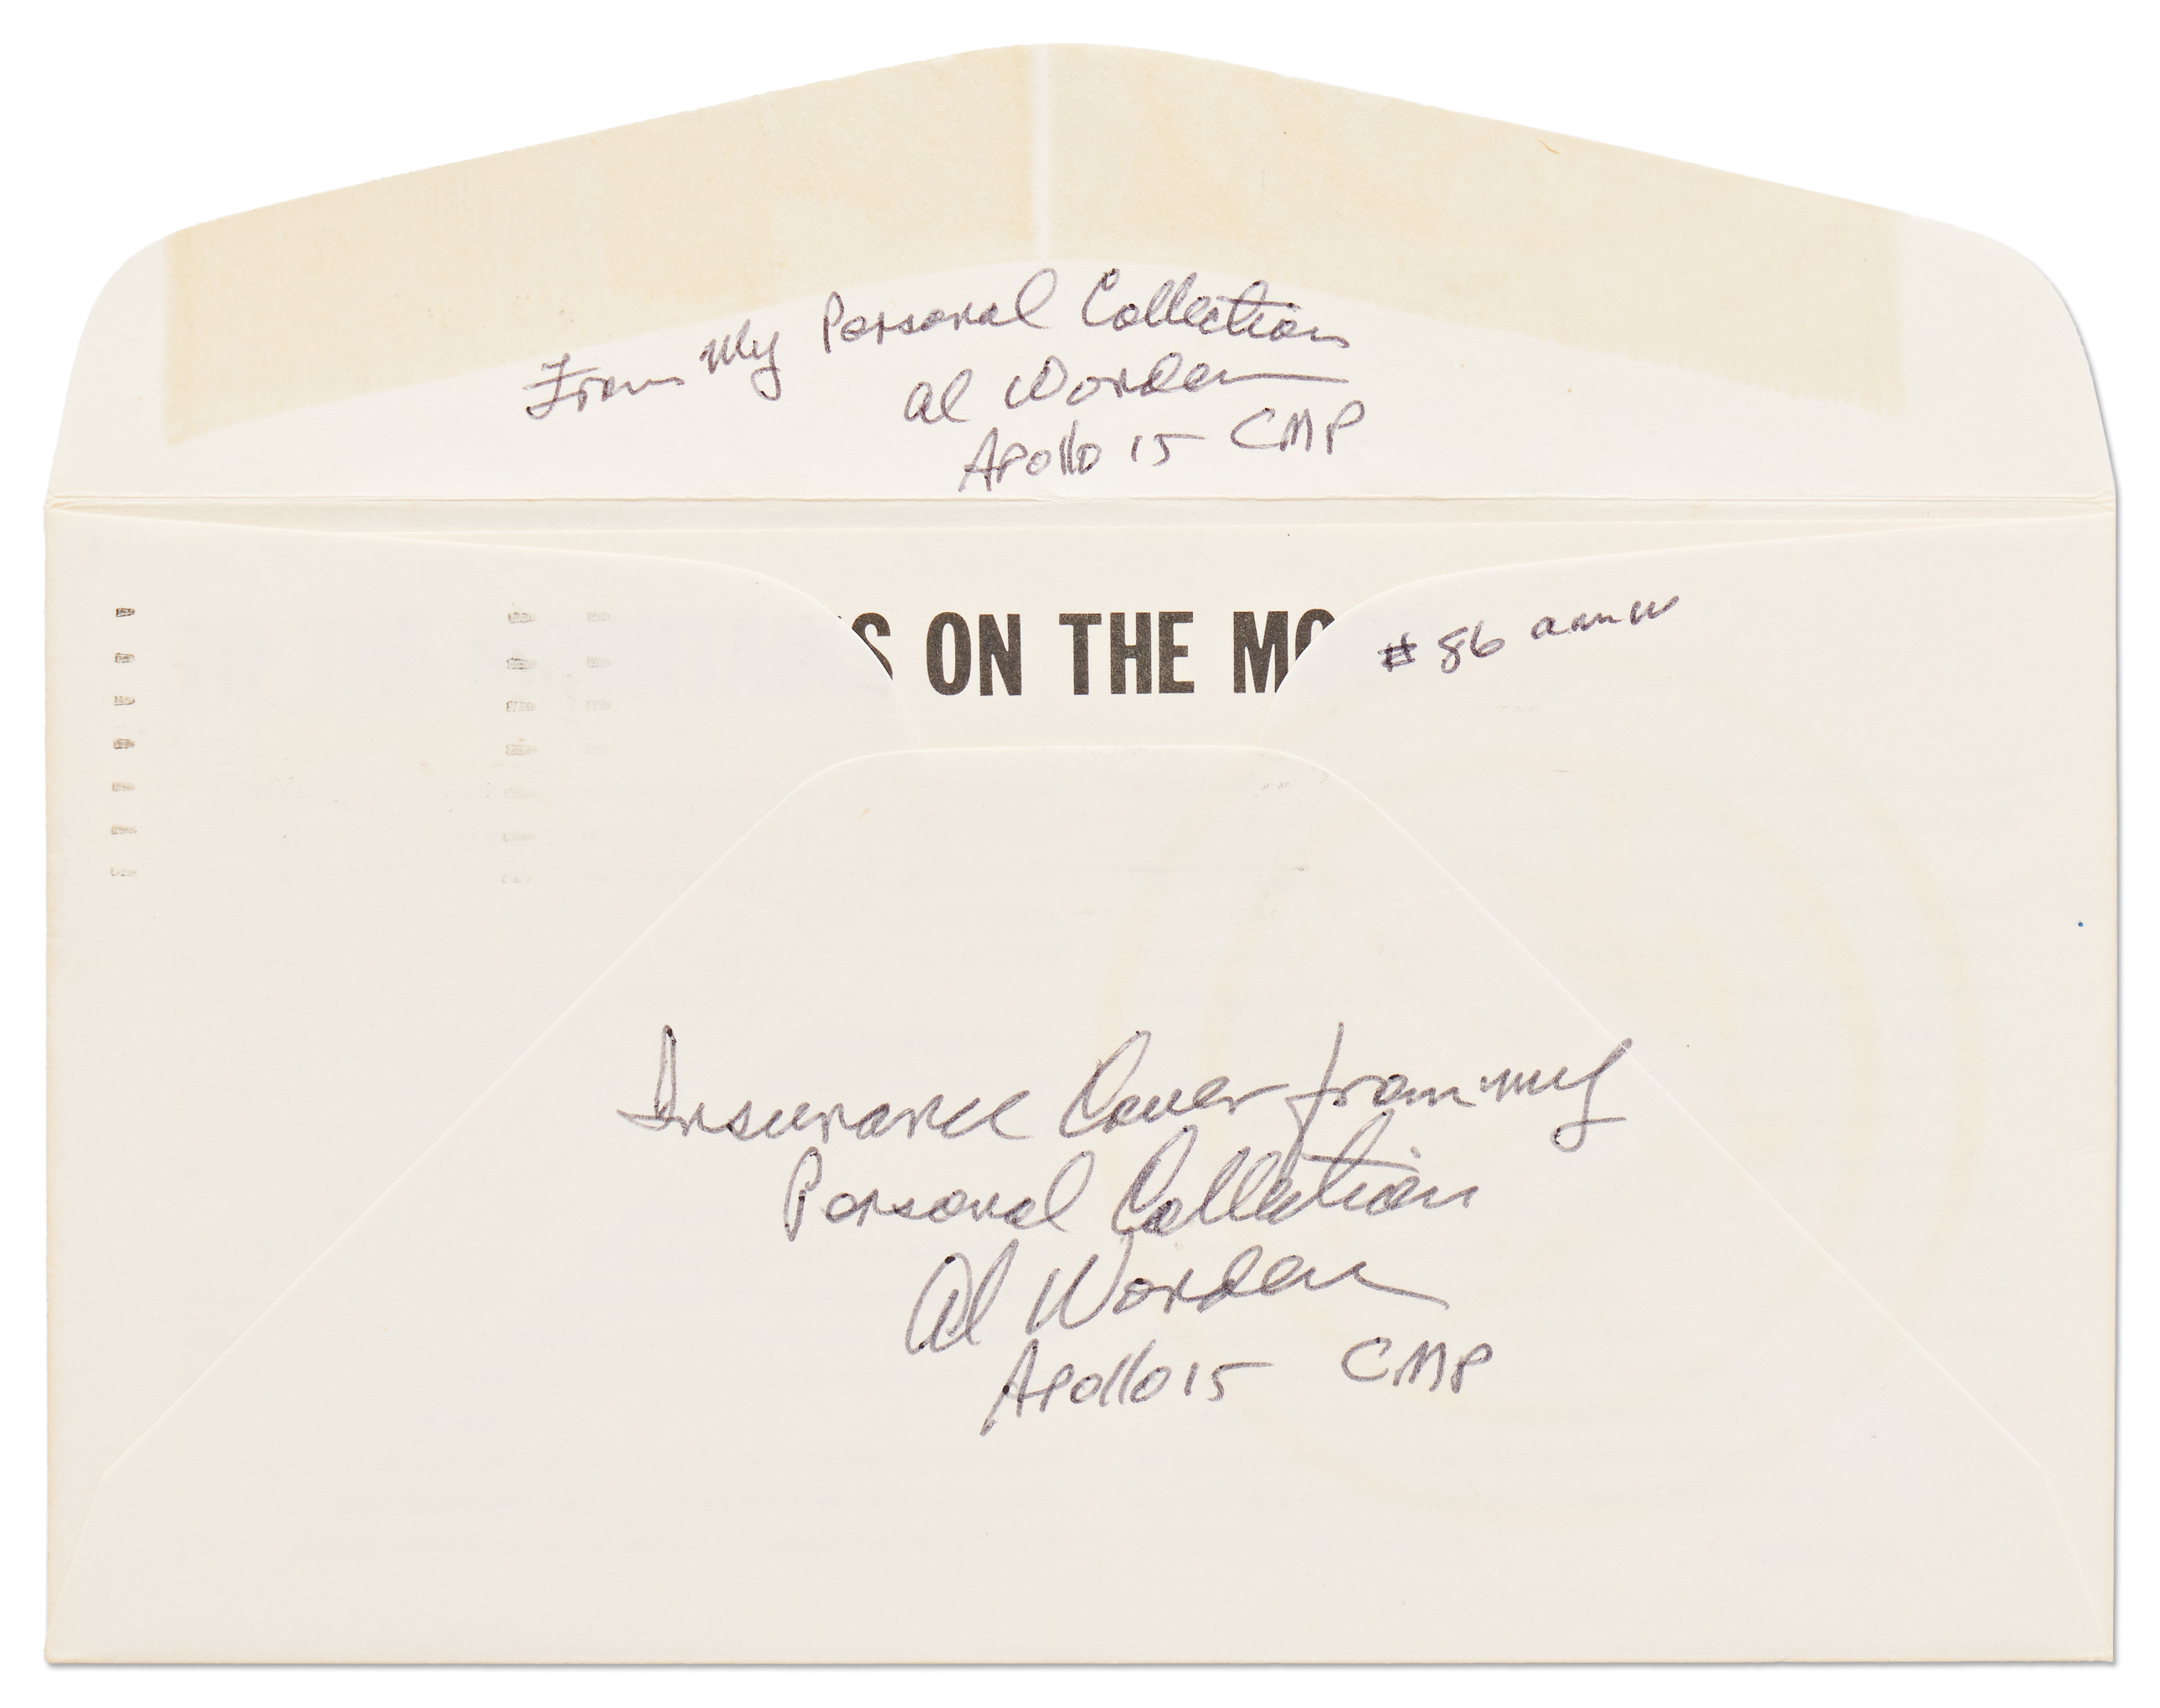 From My Personal Collection
Al Worden
Apollo 15 CMP
S ON THE MO
# 86
Insurance Cover from my
Personal Collection
Al Worden
Apollo 15 CMP